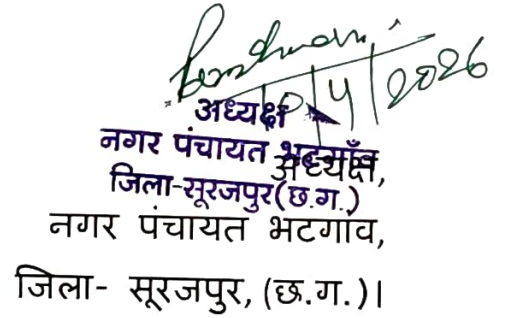 10/4/2026
अध्यक्ष
नगर पंचायत भटगाँव
अध्यक्ष,
जिला-सूरजपुर(छ.ग.)
नगर पंचायत भटगांव,
जिला- सूरजपुर, (छ.ग.)।